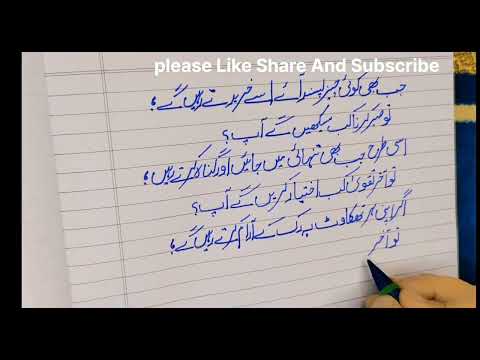 please Like Share And Subscribe
جب بھی کوئی چیز پسند آئے اسے خریدتے رہیں گے،
تو صبر کرنا کب سیکھیں گے آپ؟
اسی طرح جب بھی تنہائی میں جائیں اور گناہ کرتے رہیں،
تو آخر تقویٰ کب اختیار کریں گے آپ؟
اگر اپنی ہر تھکاوٹ پہ رک کے آرام کرتے رہیں گے،
تو آخر